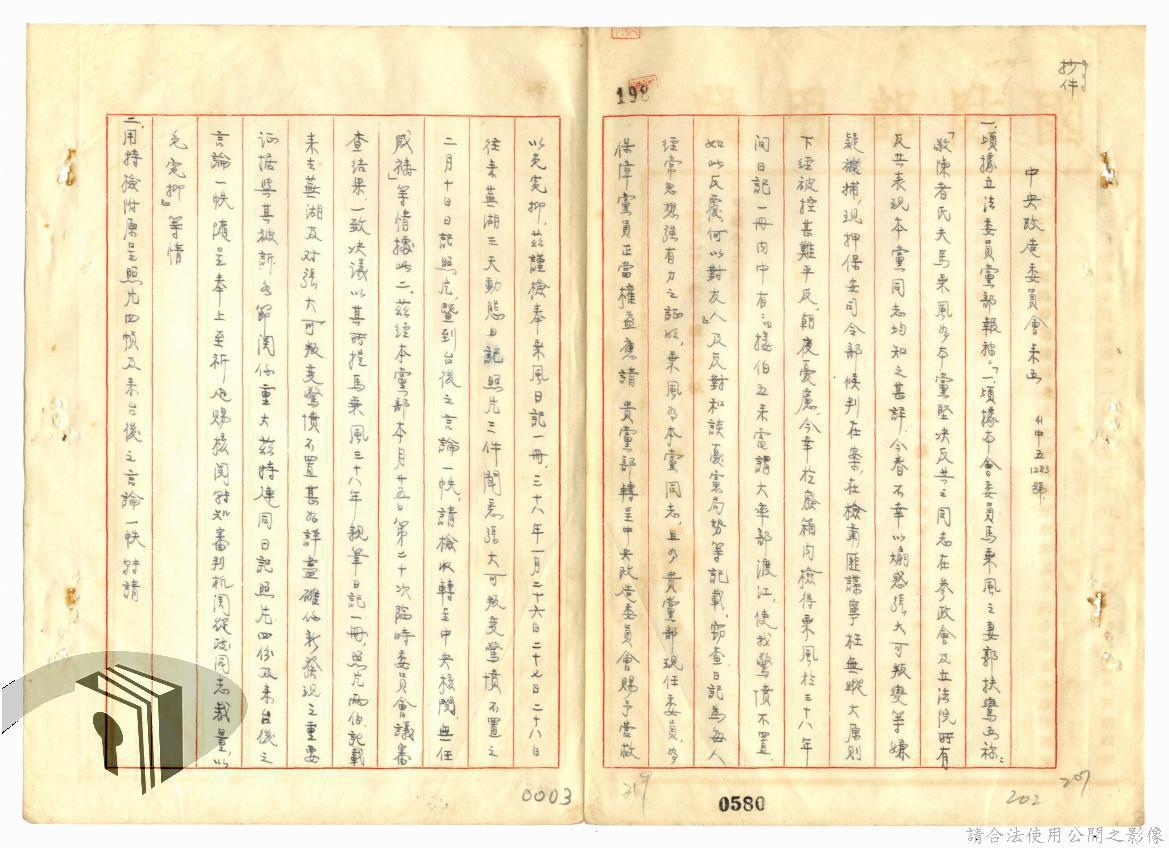 抄件
198
中央改造委員會末五
41中五1283號
一、頃據立法委員黨部報稱:「一、頃據本會委員馬乘風之妻郭扶鸞函稱:
「敬陳者氏夫馬乘風為本黨堅決反共之同志在參政會及立法院所有
反共表現本黨同志均知之甚詳,今春不幸以煽惑張大可叛變等嫌
疑被捕,現押保安司令部,候判在案,在檢肅匪諜寧枉無縱大原則
下經被控甚難平反,朝夜憂慮,今幸於廢箱內檢得乘風於三十八年
間日記一冊內中有「接伯立來電謂大率部渡江,使我驚憤不置
如此反覆何以對友人」及反對和談憂慮局勢等記載,竊查日記為每人
經常思想強有力之証明,乘風為本黨同志,且為貴黨部現任委員,為
保障黨員正當權益應請 貴黨部轉呈中央改造委員會賜予營救
以免冤抑,茲謹檢奉乘風日記一冊,三十八年一月二十六日二十七日二十八日
往來蕪湖三天動態日記照片三件聞悉張大可叛變驚憤不置之
二月十日日記照片,暨到台後之言論一帙,請檢收轉呈中央核閱無任
感禱」等情據此二、茲經本黨部本月廿五日第二十次臨時委員會議審
查結果,一致決議以其所提馬乘風三十八年親筆日記一冊,照片兩份,記載
來去蕪湖及對張大可叛變驚憤不置甚為詳盡確係新發現之重要
証据與其被訴各節関係重大茲特連同日記照片四份及來台後之
言論一帙隨呈奉上至祈 迅賜核閱轉知審判机関從法同志裁量,以
免冤抑』等情
二、用特檢附原呈照片四幀及來台後之言論一帙轉請
0003
319
0580
202
207
請合法使用公開之影像